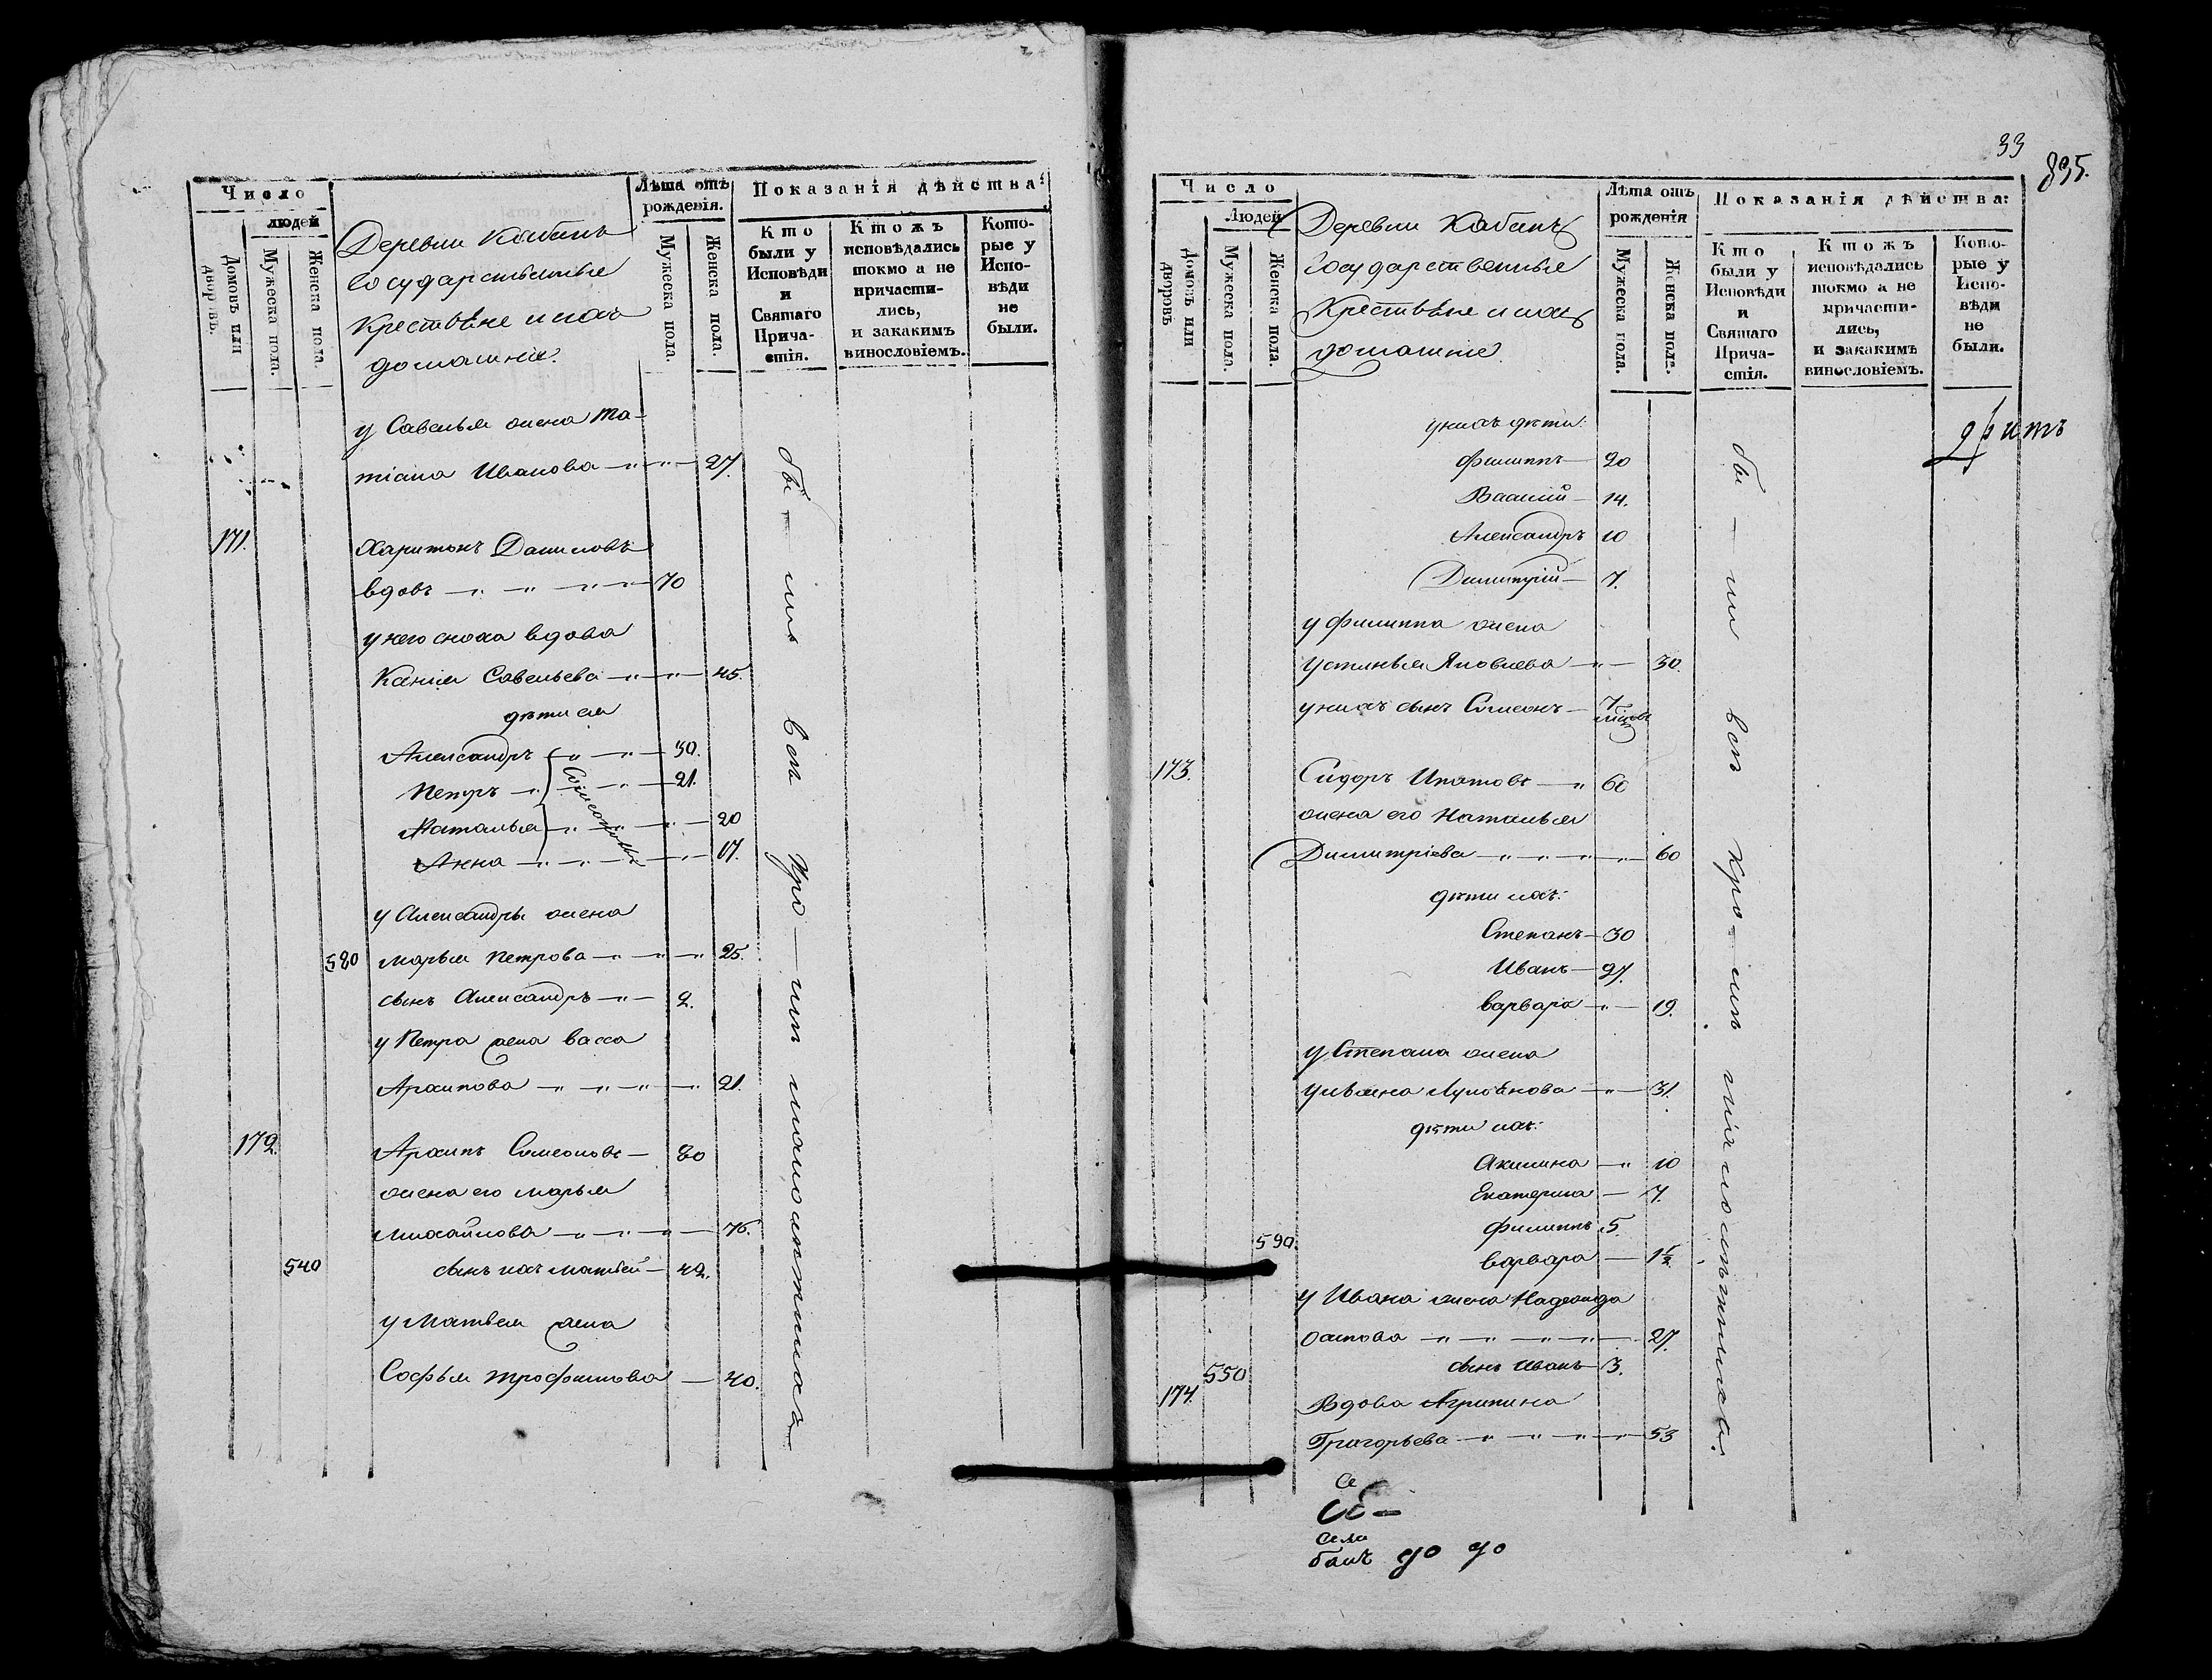 Число
людей
Домовъ или дворовъ.
Мужеска пола.
Женска пола.
Деревни Кабанъ
Государственные
Крестьяне и ихъ
домашніе.
Лѣта отъ рожденія.
Мужеска пола.
Женска пола.
Показанія дѣйства:
Кто были у Исповѣди и Святаго Прича-стія.
Ктожъ исповѣдались токмо а не причасти-лись, и закакимъ винословіемъ.
Кото-рые у Испо-вѣди не были.
у Савелья жена Та-
тіана Иванова 27.
171. Харитонъ Даниловъ
вдовъ 70
у него сноха вдова
Савельева 45.
дѣти ея
Александръ 30.
Петръ 21.
Наталья 20
Анна 17.
Симеоновы
у Александра жена
580 Марья Петрова 25.
сынъ Александръ 2.
у Петра жена Васса
Архипова 21.
172. Архипъ Симеоновъ 80
жена его Марья
Михайлова 76.
540 сынъ ихъ Матвей 42.
у Матвея жена
Софья Трофимова 40.
бы - ли всѣ кро - мѣ малолѣтнихъ
33
895.
Число
Людей
Домовъ или дворовъ
Мужеска пола.
Женска пола.
Деревни Кабанъ
Государственные
Крестьяне и ихъ
домашніе.
Лѣта отъ рожденія
Мужеска пола.
Женска пола.
Показанія дѣйства:
Кто были у Исповѣди и Святаго Прича-стія.
Ктожъ исповѣдались токмо а не причасти-лись, и закакимъ винословіемъ.
Кото-рые у Испо-вѣди не были.
у нихъ дѣти:
Филиппъ 20
Василій 14.
Александръ 10
Димитрій 7.
у Филиппа жена
Устинья Яковлева 30.
у нихъ сынъ Симеонъ 7
173. Сидоръ Ипатовъ 60
жена его Наталья
Димитріева 60
дѣти ихъ:
Степанъ 30
Иванъ 27.
Варвара 19.
у Степана жена
Ульяна Лукоянова 31.
дѣти ихъ:
Акилина 10
Екатерина 7.
Филиппъ 5.
590. Варвара 1½
у Ивана жена Надежда
27.
550 сынъ Иванъ 3.
174. Вдова Агрипина
Григорьева 53
бы - ли всѣ кро - мѣ
Се
Се -
села
до до